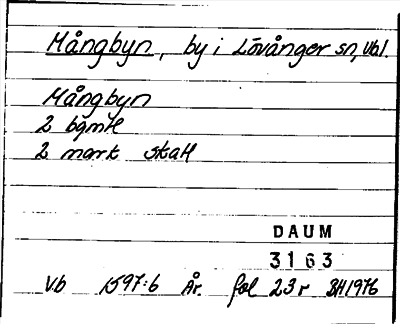 Mångbyn, by i Lövånger sn, Vbl.
Mångbyn
2 bgmtl
2 mark skatt
DAUM
3163
V.b 1597:6 År. fol 23r BH1976